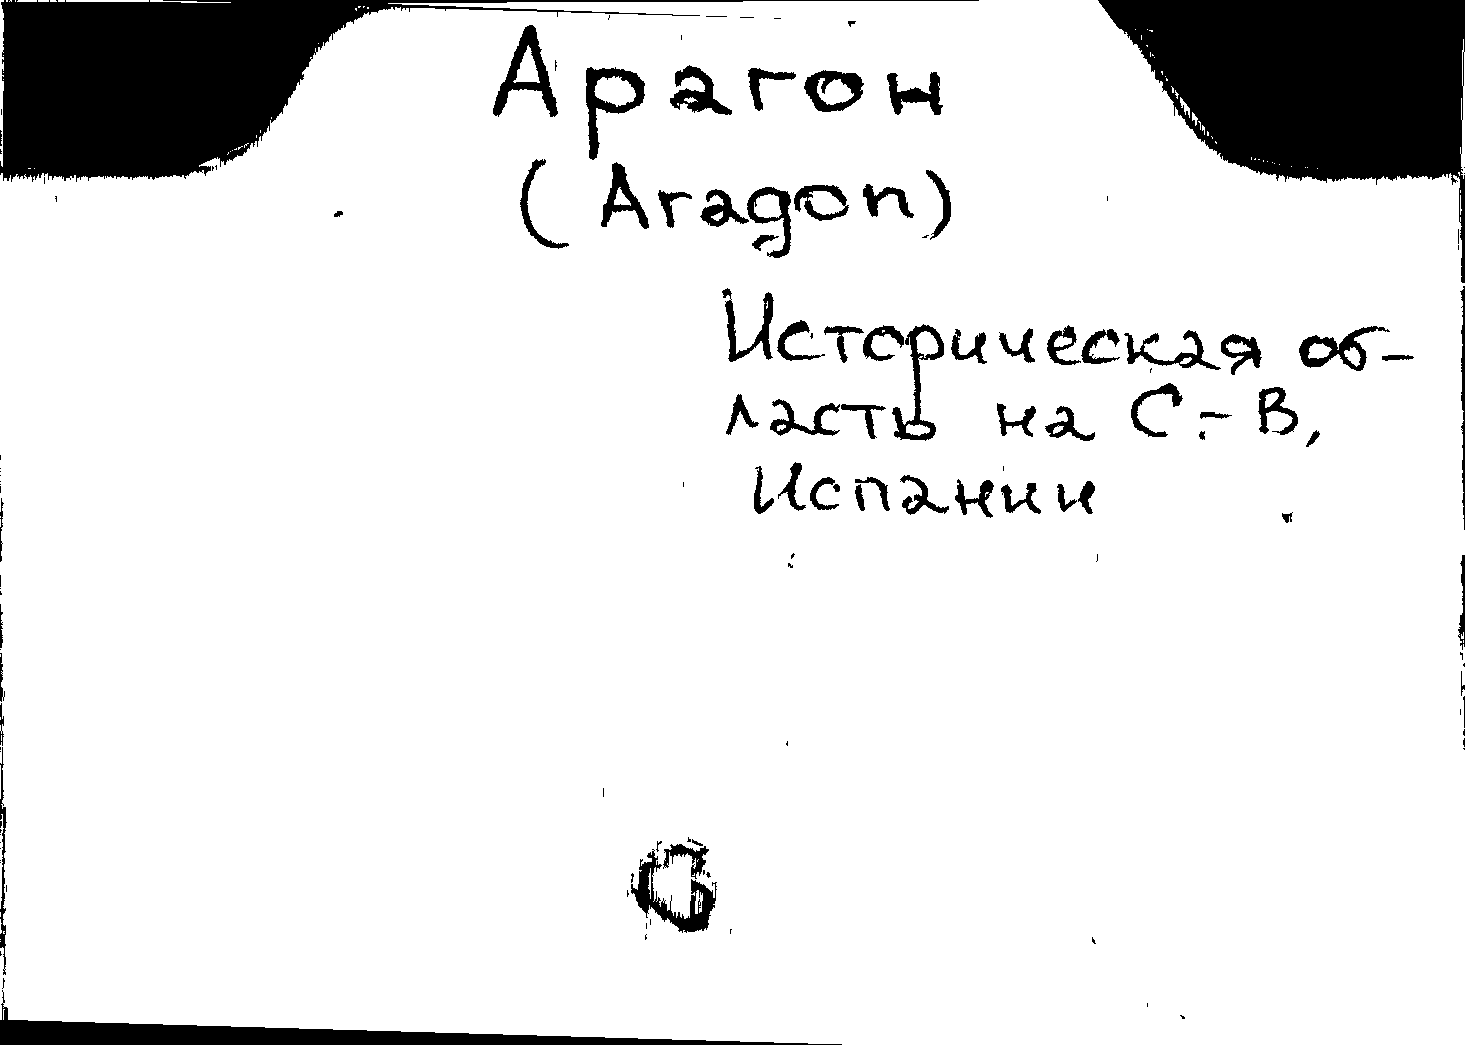 Арагон
(Aragon)
Историческая об-
ласть на С.-В,
Испании